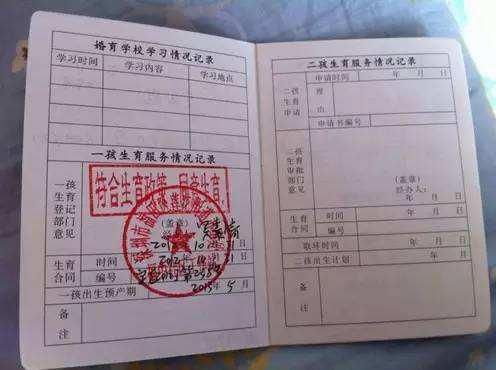 婚育学校学习情况记录
学习时间 学习内容 学习地点
一孩生育服务情况记录
一孩生育登记部门意见
符合生育政策
(盖章)
生育合同 时间
编号
一孩出生预产期 2015年5月
备注
二孩生育服务情况记录
二孩生育申请 申请时间 年 月 日
理由
申请书编号
二孩生育审批部门意见
(盖章)
经办人:
年 月 日
生育合同 时间 年 月 日
编号
取环时间 年 月 日
二孩出生计划
备注